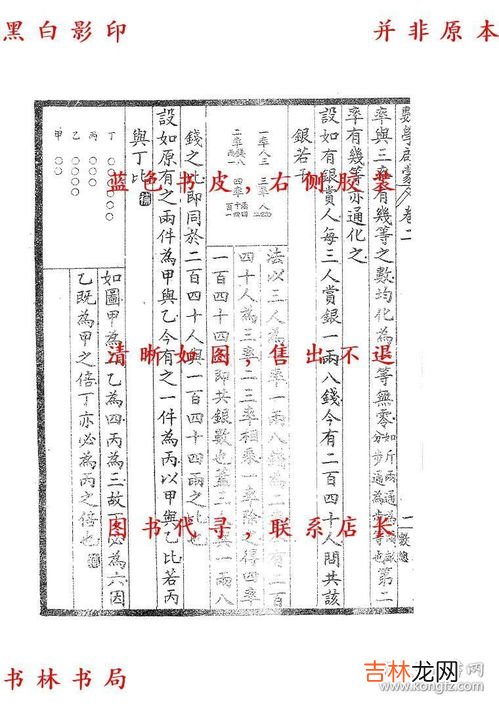 黑白影印
并非原本
率與三率有幾等之數均化為 等無零
第二
率有幾等亦通化之
設如有銀賞人每三人賞銀一兩八錢今有二百四十人問共該
銀若干
一率人三
三率人
二率
四率
法以三人為 率一兩八錢為二 有二百
四十人為三率二三率相乘一率除之得四率
一百四十四即共銀數也蓋三 與一兩八
錢之比即同於二百四十人與一百四十四兩之比也
設如原有之兩件為甲與乙今有之一件為丙以甲與乙比若丙
與丁比
丁
丙
乙
甲
如圖甲為 乙為四丙為三故丁必為六因
乙既為甲之倍丁亦必為丙之倍也
蓝色书皮,右侧胶装
清晰如图,售出不退
图书代寻,联系店长
书林书局
吉林龙网
www.kongfz.com